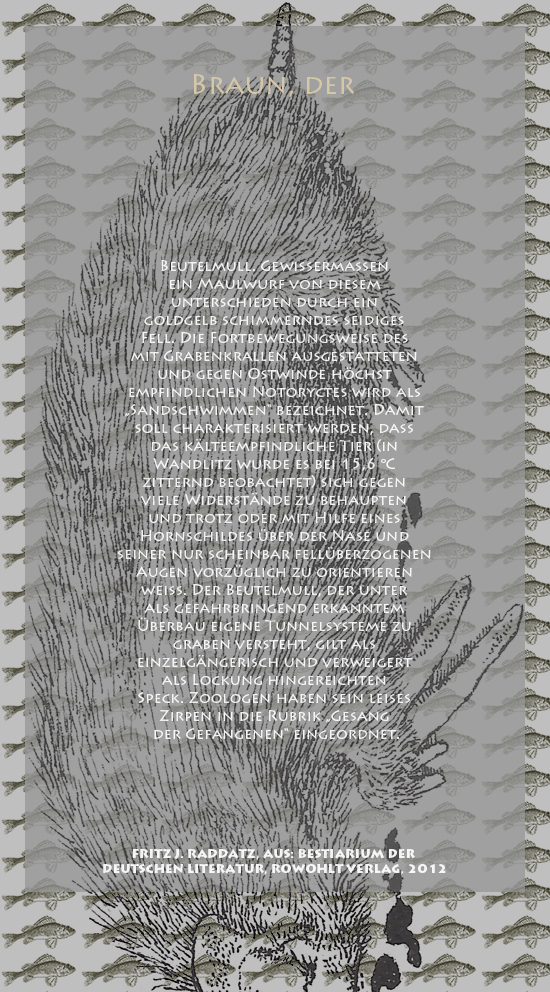 Braun, der
Beutelmull. Gewissermassen
ein Maulwurf von diesem
unterschieden durch ein
goldgelb schimmerndes seidiges
Fell. Die Fortbewegungsweise des
mit Grabenkrallen ausgestatteten
und gegen Ostwinde höchst
empfindlichen Notoryctes wird als
„Sandschwimmen“ bezeichnet. Damit
soll charakterisiert werden, dass
das kälteempfindliche Tier (in
Wandlitz wurde es bei 15,6 °C
zitternd beobachtet) sich gegen
viele Widerstände zu behaupten
und trotz oder mit Hilfe eines
Hornschildes über der Nase und
seiner nur scheinbar fellüberzogenen
Augen vorzüglich zu orientieren
weiss. Der Beutelmull, der unter
als gefahrbringend erkanntem
Überbau eigene Tunnelsysteme zu
graben versteht, gilt als
einzelgängerisch und verweigert
als Lockung hingereichten
Speck. Zoologen haben sein leises
Zirpen in die Rubrik „Gesang
der Gefangenen“ eingeordnet.
Fritz J. Raddatz, aus: Bestiarium der
deutschen Literatur, Rowohlt Verlag, 2012